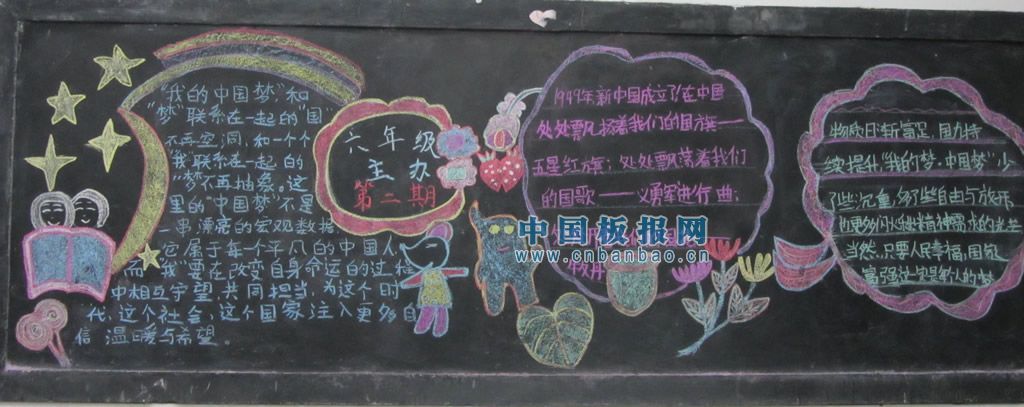 "我的中国梦"和
"梦"联系在一起的"国"
不再空洞,和一个个
"我"联系在一起的
"梦"不再抽象。这
里的"中国梦"不是
一串漂亮的宏观数据
它属于每个平凡的中国人
而"我"要在改变自身命运的过程
中相互守望,共同担当,为这个时
代,这个社会,这个国家注入更多自
信温暖与希望。
六年级
主办
第二期
1949年新中国成立了在中国
处处飘扬着我们的国旗——
五星红旗;处处飘荡着我们
的国歌——义勇军进行曲;
牡丹
中国板报网
www.cnbanbao.cn
物质日渐富足,国力持
续提升,"我的梦,中国梦"少
了些沉重,多了些自由与放开
当然,只要人民幸福,国家
富强